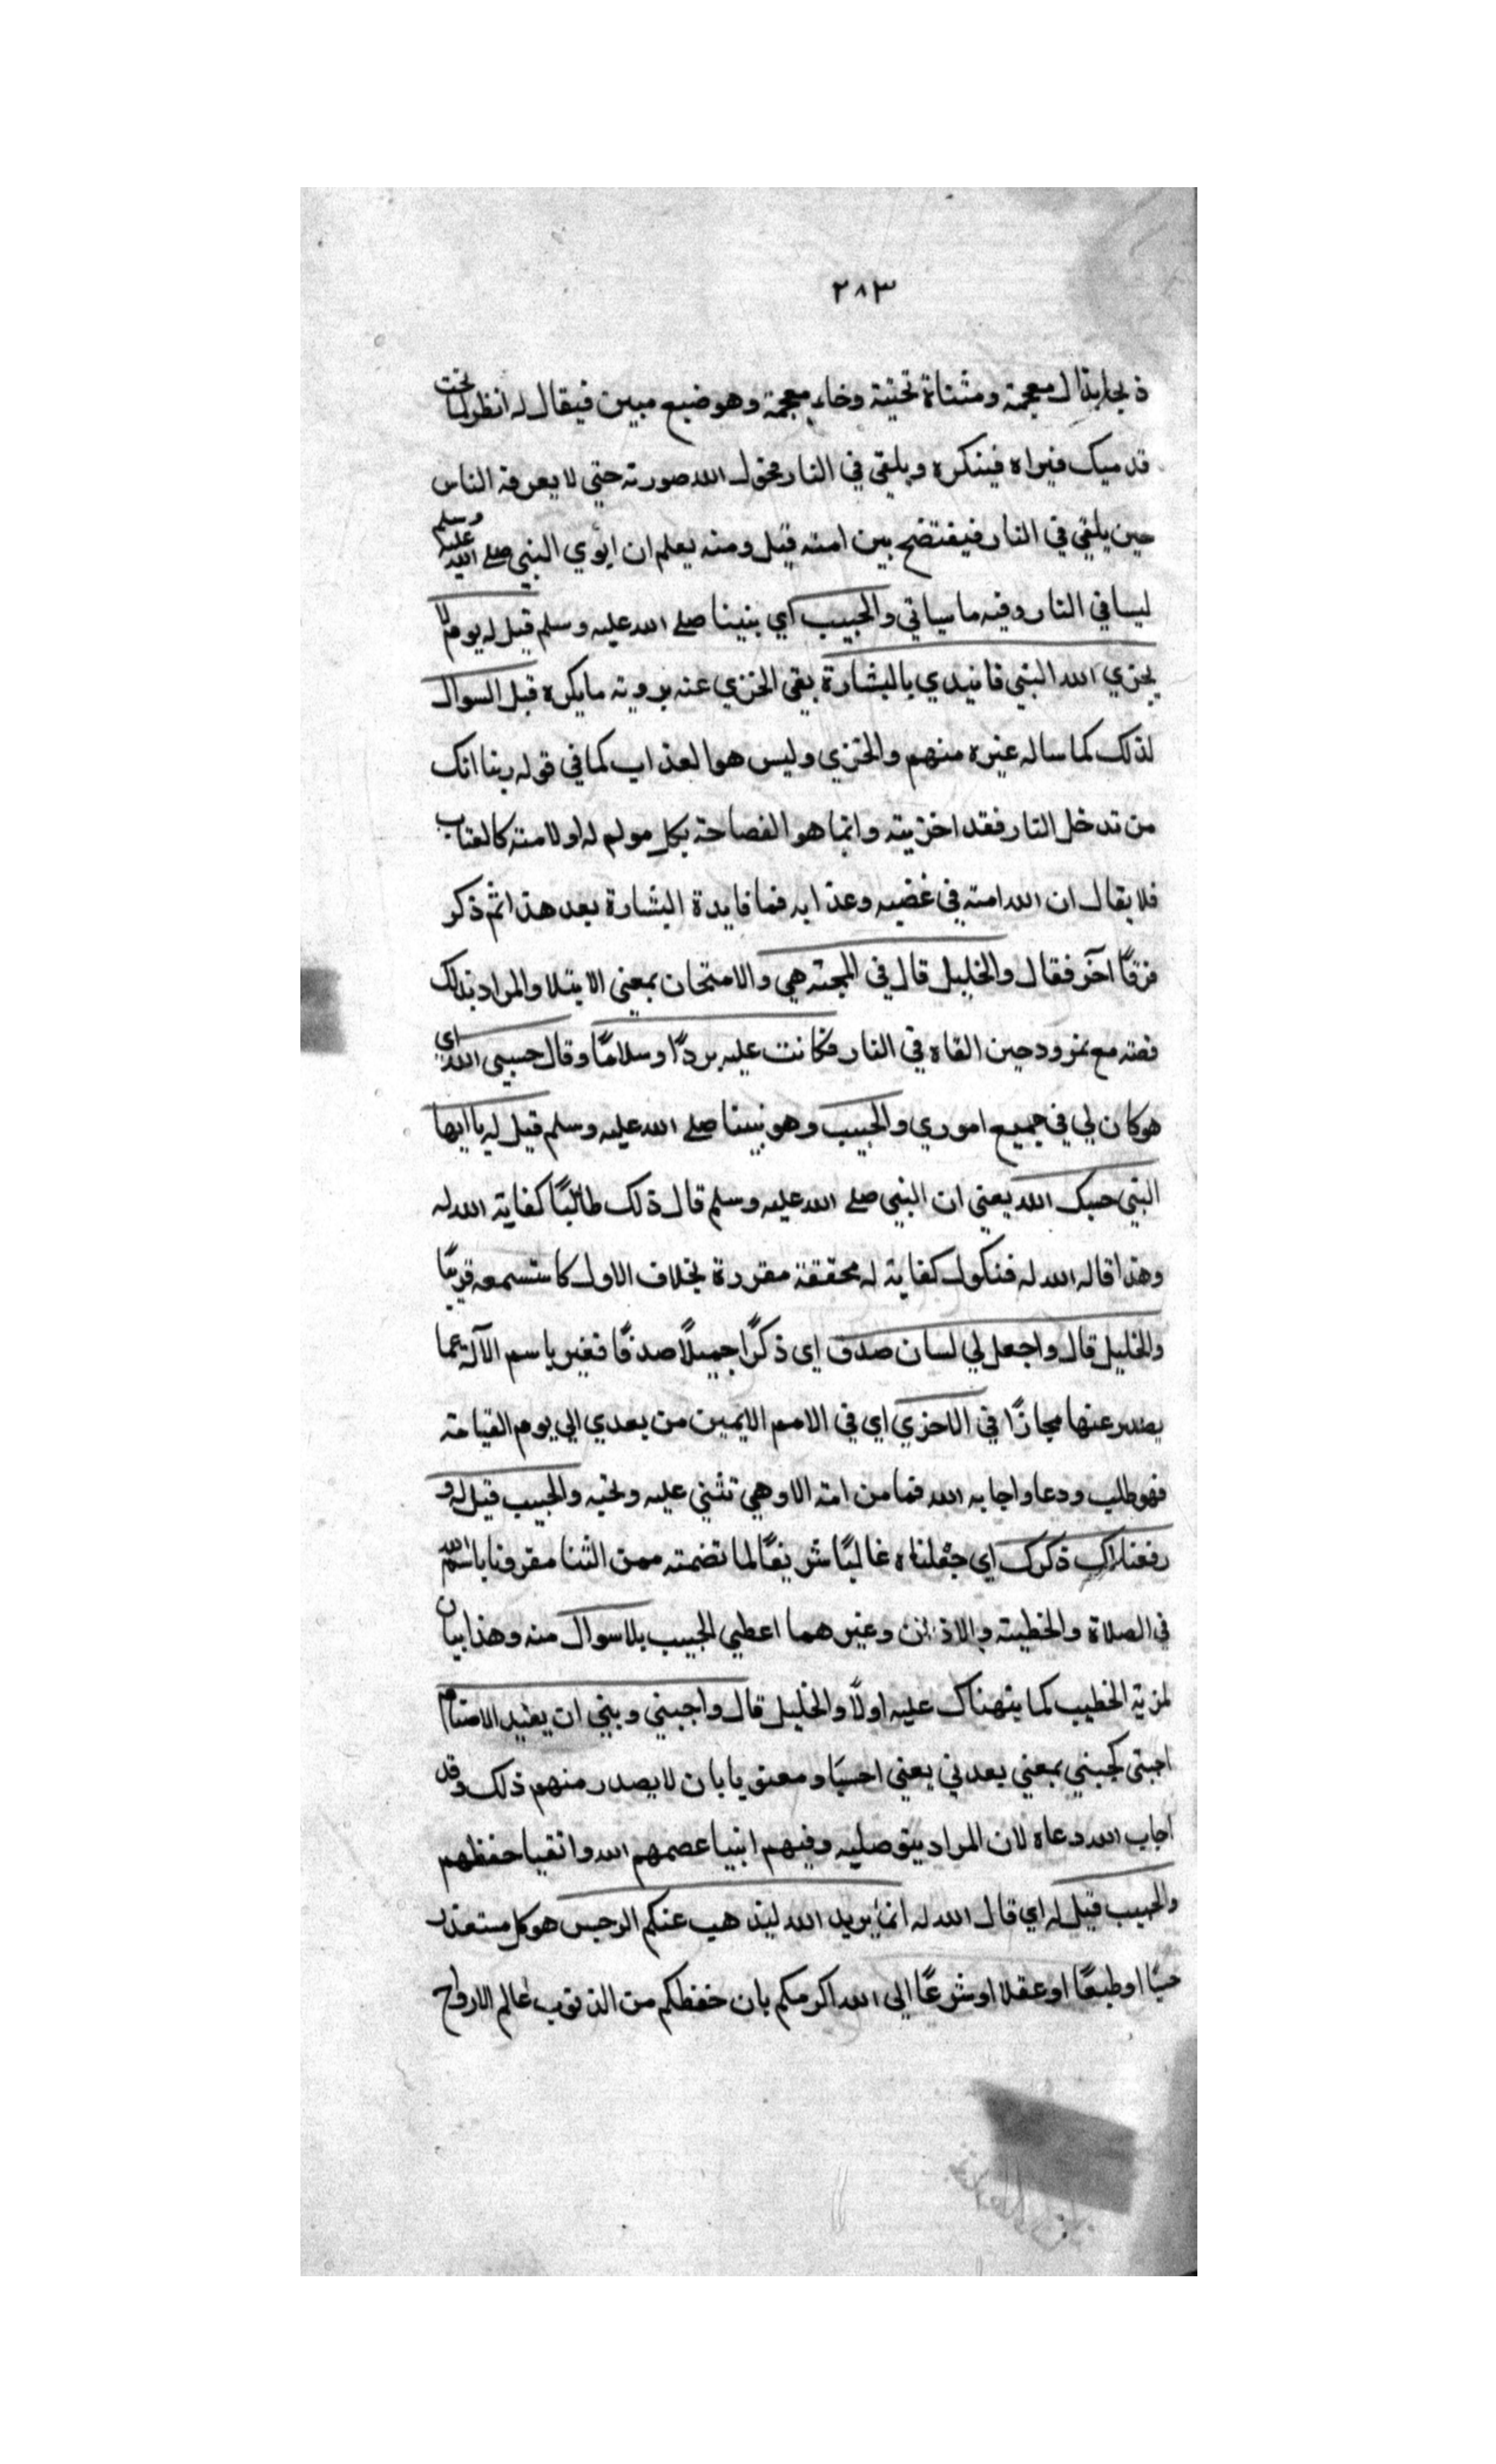 ٢٨٣
ذيخا بذال معجمة ومثناة تحتية وخاء معجمة وهو ضبع مبين فيقال له انظر لما تحت
قدميك فيراه فينكره ويلقي في النار فحول الله صورته حتي لا يعرفه الناس
حين يلقي في النار فيفتضح بين امته قيل ومنه يعلم ان ابوي النبي صلي الله عليه وسلم
ليسا في النار وفيه ما سياتي والحبيب اي نبينا صلي الله عليه وسلم قيل له يوم لا
يخزي الله النبي فابتدي بالبشارة بقي الخزي عنه برويته ما يكره قبل السوال
لذلك كما ساله غيره منهم والخزي وليس هو العذاب كما في قوله ربنا انك
من تدخل النار فقد اخزيته وانما هو الفصاحة بكل مولم له او لامته كالعتاب
فلا يقال ان الله امته في غضبه وعذابه فما فايدة البشارة بعد هذا ثم ذكر
فرقا آخر فقال والخليل قال في المحنه هي والامتحان بمعني الابتلا والمراد بذلك
قصته مع نمرود حين القاه في النار فكانت عليه بردًا وسلامًا وقال حسبي الله اي
هو كان لي في جميع اموري والحبيب وهو نبينا صلي الله عليه وسلم قيل له يا ايها
النبي حسبك الله يعني ان النبي صلي الله عليه وسلم قال ذلك طالبًا كفاية الله له
وهذا قاله الله له فنكول كفاية له محققة مقررة بخلاف الاول كما ستسمعه قريبًا
والخليل قال واجعل لي لسان صدق اي ذكرًا جميلًا صدقًا فغير باسم الآلة عما
يصدر عنها مجازًا في الاخري اي في الامم الايمين من بعدي الي يوم القيامة
فهو طلب ودعا واجابه الله فما من امة الا وهي تثني عليه وتحبه والحبيب قيل له و
رفعنا لك ذكرك اي جعلناه غالبًا شريفًا لما تضمته ممن الثنا مقرونا باسم الله
في الصلاة والخطبة والاذان وغيرهما اعطي الحبيب بلا سوال منه وهذا بيان
لمزية الخطيب كما ينهناك عليه اولًا والخليل قال واجنبني وبني ان يعبد الاصنام
اجنبني كجنبني بمعني بعدني يعني احسيا ومعنويا بان لا يصدر منهم ذلك وقد
اجاب الله دعاه لان المراد بنو صلبه وفيهم انبيا عصمهم الله واتقيا حفظهم
والحبيب قيل له اي قال الله له انما يريد الله ليذهب عنكم الرجس هو كل مستعذر
حسًا او طبعًا او عقلا او شرعًا الي الله اكرمكم بان حفظكم من الذنوب عالم الارواح